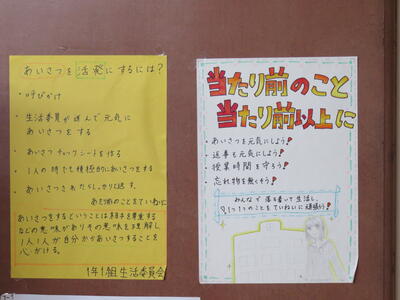 あいさつを活発にするには?
・呼びかけ
・生活委員が進んで元気に
あいさつをする
・あいさつチェックシートを作る
・1人の時でも積極的にあいさつをする
・あいさつされたらしっかり返す。
あいさつをするということは相手を尊重する
などの意味がありその意味を理解し
1人1人が自分からあいさつすることを
心がける。
1年1組 生活委員会
当たり前のこと
当たり前以上に
・あいさつを元気にしよう!
・返事も元気にしよう!
・授業時間を守ろう!
・忘れ物を無くそう!
みんなで落ち着いて生活し、
1つ1つのことをていねいに頑張ろう!